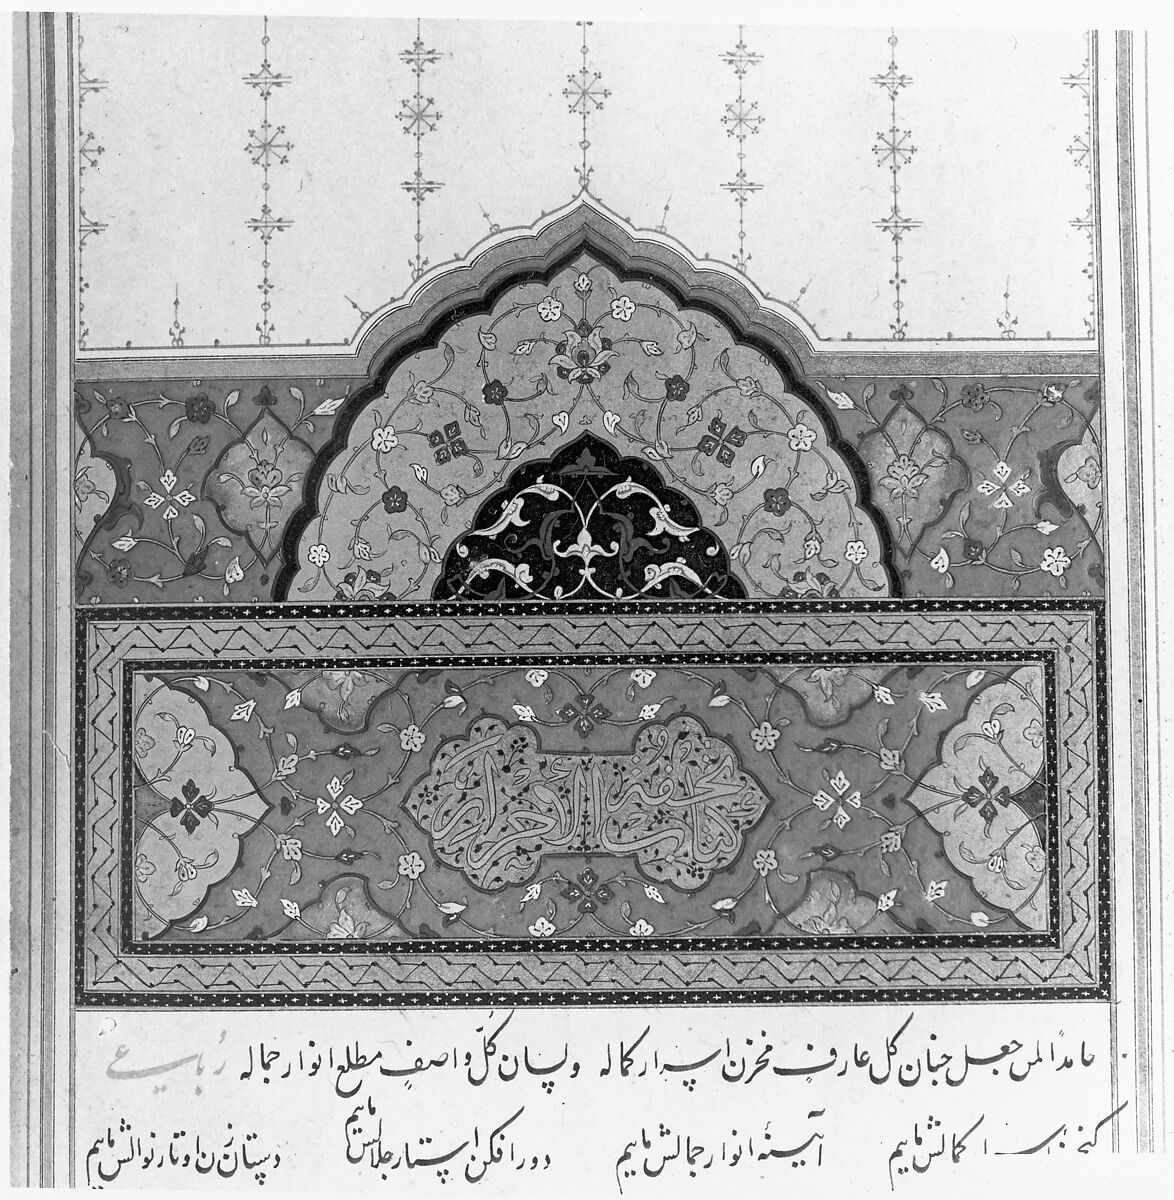 کتاب تحفة الاحرار
حامداً لمن جعل جنان کل عارفٍ مخزن اسرار کماله ولسان کلّ واصفٍ مطلع انوار جماله رباعی
کنج اسرار کمالش ماییم آیینهٔ انوار جمالش ماییم دور افکن استار جلالش ماییم دستان زن اوتار نوالش ماییم